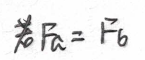 若Fa = Fb